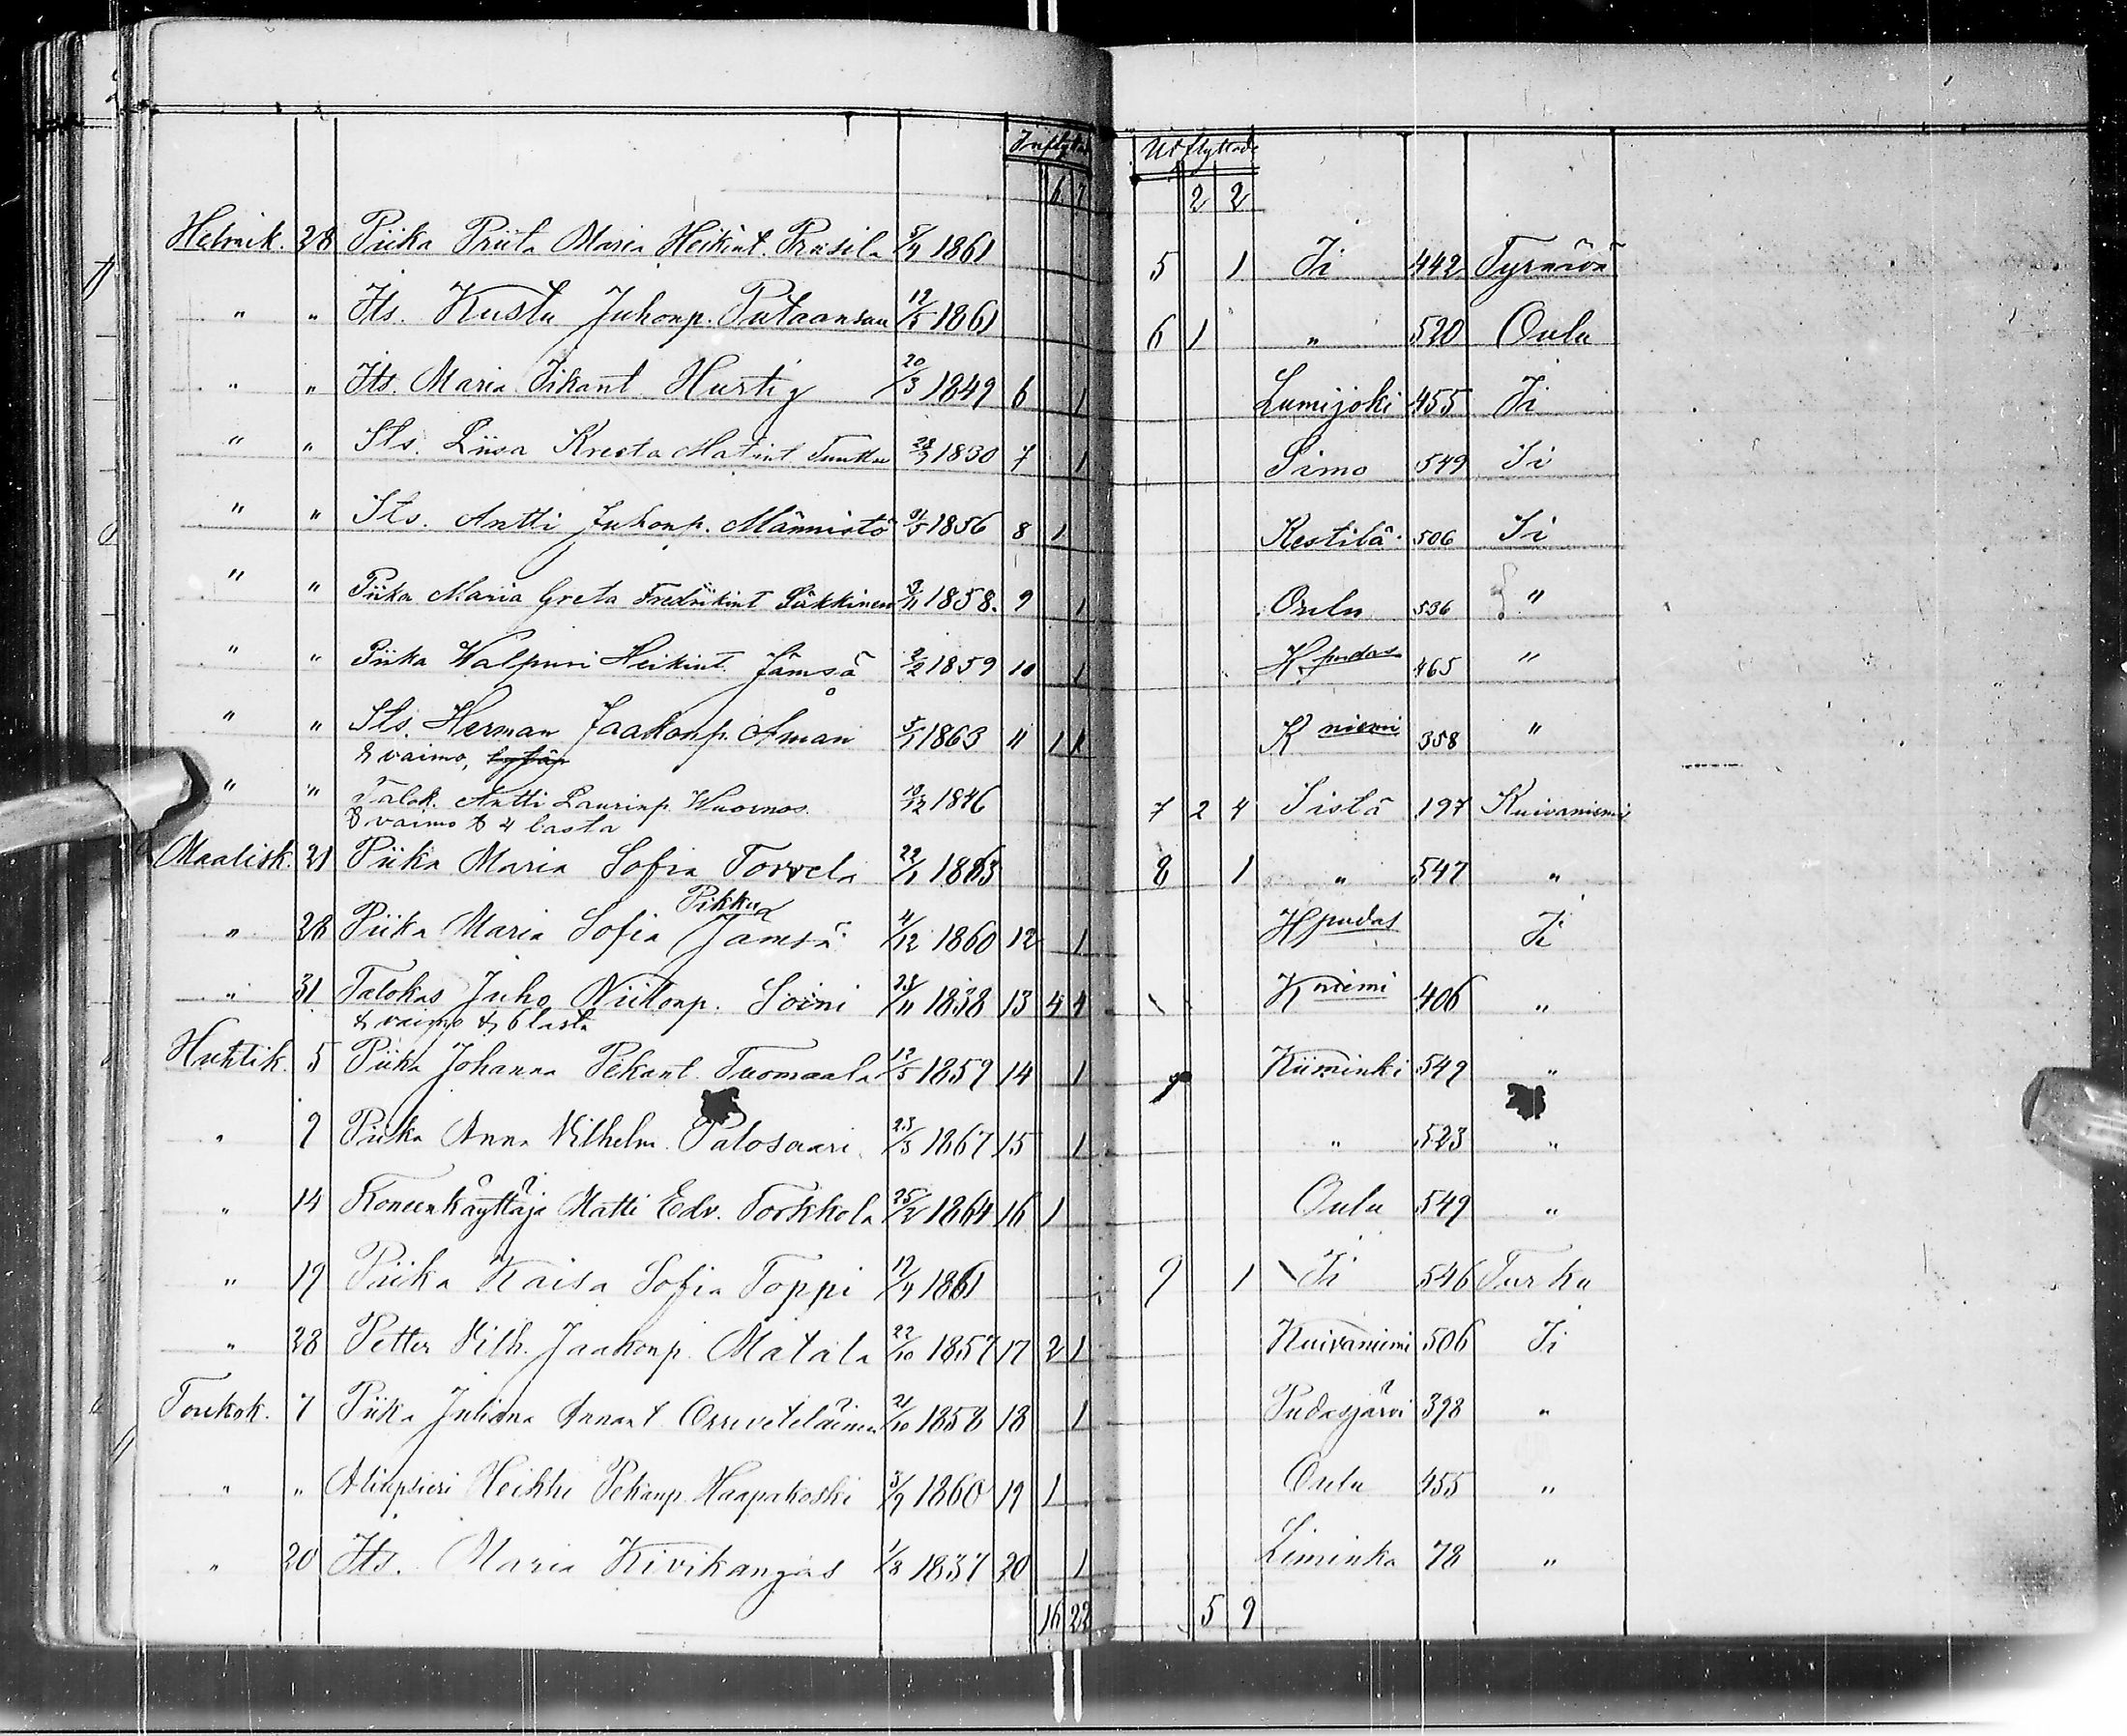 Inflyttade Utflyttade
6 7 2 2
Helmik. 28 Piika Priita Maria Heikint. Prusila 5/9 1861 5 1 Ii 442 Tyrnävä
" " Its. Kustu Juhonp. Putaansuu 12/5 1861 6 1 " 520 Oulu
" " Its. Maria Iikant. Hurtig 20/3 1849 6 1 Lumijoki 455 Ii
" " Its. Liisa Kreeta Matint 1830 7 1 Simo 549 Ii
" " Its. Antti Juhonp. Männistö 1856 8 1 Kestilä 506 Ii
" " Piika Maria Greta Fredrikint Säkkinen 1858. 9 1 Oulu 536 "
" " Piika Walpuri Heikint. Jämsä 2/2 1859 10 1 H. pudas 465 "
" " Its. Herman Jaakonp. Åman 5/7 1863 11 1 1 K niemi 358 "
& vaimo,
" " Talok. Antti Laurinp. Wuornos. 10/12 1846 7 2 4 Iistä 197 Kuivaniemi
& vaimo & 4 lasta
Maalisk. 21 Piika Maria Sofia Torvela 22/1 1863 8 1 " 547 "
Pikku
" 28 Piika Maria Sofia Jämsä 4/12 1860 12 1 H pudas Ii
" 31 Talokas Juho Niilonp. Soini 1838 13 4 4 K niemi 406 "
& vaimo & 6 lasta
Huhtik. 5 Piika Johanna Pekant. Tuomaala 12/5 1859 14 1 Kiiminki 549 "
" 9 Piika Anna Vilhelm. Palosaari 23/3 1867 15 1 " 523 "
" 14 Koneenkäyttäjä Matti Edv. Torkkola 25/2 1864 16 1 Oulu 549 "
" 19 Piika Kaisa Sofia Toppi 12/9 1861 9 1 Ii 546 Turku
" 28 Petter Vilh. Jaakonp. Matala 22/10 1857 17 2 1 Kuivaniemi 506 Ii
Toukok. 7 Piika Juliana Annant. 21/10 1858 18 1 Pudasjärvi 398 "
" " Heikki Pekanp. Haapakoski 3/9 1860 19 1 Oulu 455 "
" 20 Its. Maria Kivikangas 1/8 1837 20 1 Liminka 78 "
16 22 5 9